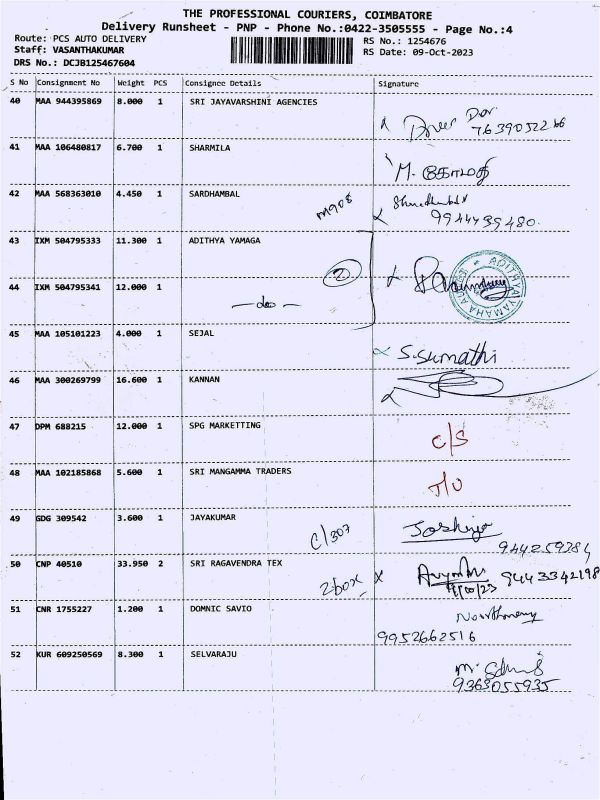 THE PROFESSIONAL COURIERS, COIMBATORE
Delivery Runsheet - PNP - Phone No.:0422-3505555 - Page No.:4
Route: PCS AUTO DELIVERY RS No.: 1254676
Staff: VASANTHAKUMAR RS Date: 09-Oct-2023
DRS No.: DCJB125467604
S No Consignment No Weight PCS Consignee Details Signature
40 MAA 944395869 8.000 1 SRI JAYAVARSHINI AGENCIES
7639052266
41 MAA 106480817 6.700 1 SHARMILA
M.
42 MAA 568363010 4.450 1 SARDHAMBAL
M908
9944739480.
43 IXM 504795333 11.300 1 ADITHYA YAMAGA
2
44 IXM 504795341 12.000 1
— do —
ADITHYA YAMAHA
45 MAA 105101223 4.000 1 SEJAL
S.Sumathi
46 MAA 300269799 16.600 1 KANNAN
47 DPM 688215 12.000 1 SPG MARKETTING
C/S
48 MAA 102185868 5.600 1 SRI MANGAMMA TRADERS
T/U
49 GDG 309542 3.600 1 JAYAKUMAR
C/307
50 CNP 40510 33.950 2 SRI RAGAVENDRA TEX
2 box X 9443342198
51 CNR 1755227 1.200 1 DOMNIC SAVIO
9952662516
52 KUR 609250569 8.300 1 SELVARAJU
9363055935